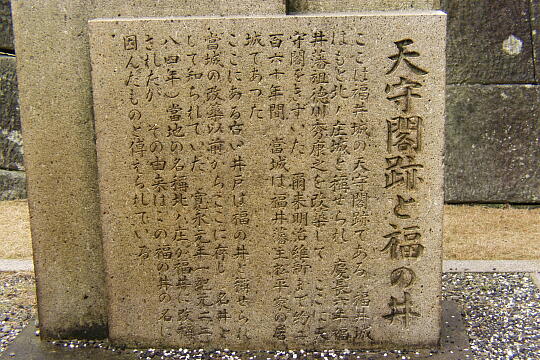 天守閣跡と福の井
ここは福井城の天守閣跡である 福井城
はもと北ノ庄城と稱せられ 慶長六年福
井藩祖徳川秀康之を改築して ここに天
守閣をきずいた 爾来明治維新まで約二
百六十年間 當城は福井藩主松平家の居
城であつた
ここにある古い井戸は福の井と稱せられ
當城の改築以前からここに存し 名井と
して知られていた 寛永元年(紀元二二
八四年)當地の名稱北ノ庄が福井に改稱
されたが その由来はこの福の井の名に
因んだものと傳えられている